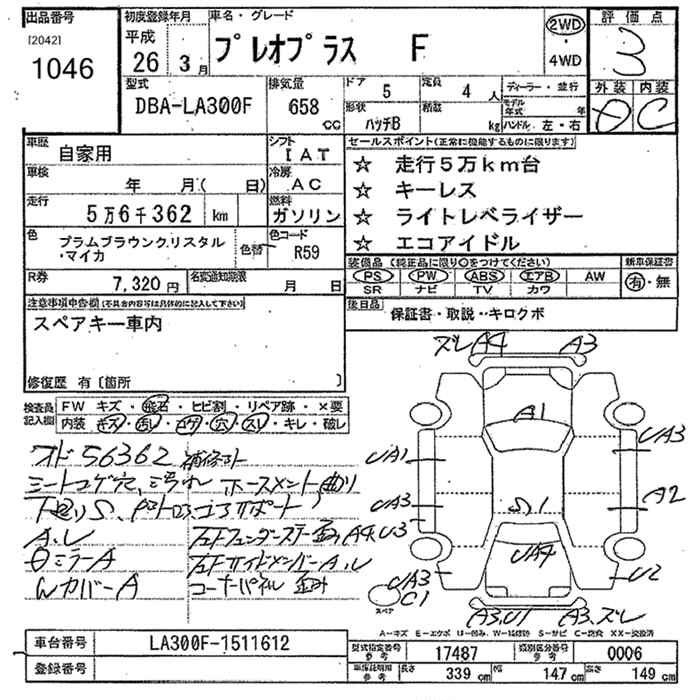 出品番号 初度登録年月 車名・グレード 2WD 評価点
[2042] 平成 プレオプラス F ・ 3
1046 26年 3月 4WD
型式 排気量 ドア 5 定員 4人 ディーラー・並行 外装 内装
DBA-LA300F 658cc 形状 ハッチB 積載 kg モデル年式 年 ハンドル 左・右 C
車歴 自家用 シフト IAT セールスポイント(正常に機能するものに限ります)
車検 年 月( 日) 冷房 AC ☆ 走行5万km台
走行 5万6千362 km 燃料 ガソリン ☆ キーレス
色 プラムブラウンクリスタル・マイカ 色替 色コード R59 ☆ ライトレベライザー
☆ エコアイドル
R券 7,320円 名変通知期限 月 日 装備品(純正品に限り○をつけてください) 新車保証書
PS PW ABS エアB AW 有・無
SR ナビ TV カワ
注意事項申告欄(不具合内容等は具体的に記入して下さい) 後日品 保証書・取説・キロクボ
スペアキー車内
修復歴 有[箇所 ]
ズレA4 A3
検査員記入欄 FW キズ・飛石・ヒビ割・リペア跡・×要
内装 キズ・汚レ・コゲ・穴・スレ・キレ・破レ
A1
オド56362 補修コト UA1 UA3
シートコゲ穴、ミゾ汚れ ホースメント曲り
下廻りS、 コアサポート UA3 S1 A2
A.レ 左Fフェンダーステー歪み A4,U3
θミラーA 左FサイドメンバーA.レ UA4
WカバーA コーナーパネル 歪み UA3 U2
スペア C1
A3.U1 A3.ズレ
A-キズ E-エクボ U-凹み W-補修跡 S-サビ C-腐食 XX-交換済
車台番号 LA300F-1511612 型式指定番号 参考 17487 類別区分番号 参考 0006
登録番号 車庫証明用 参考 長さ 339cm 幅 147cm 高さ 149cm